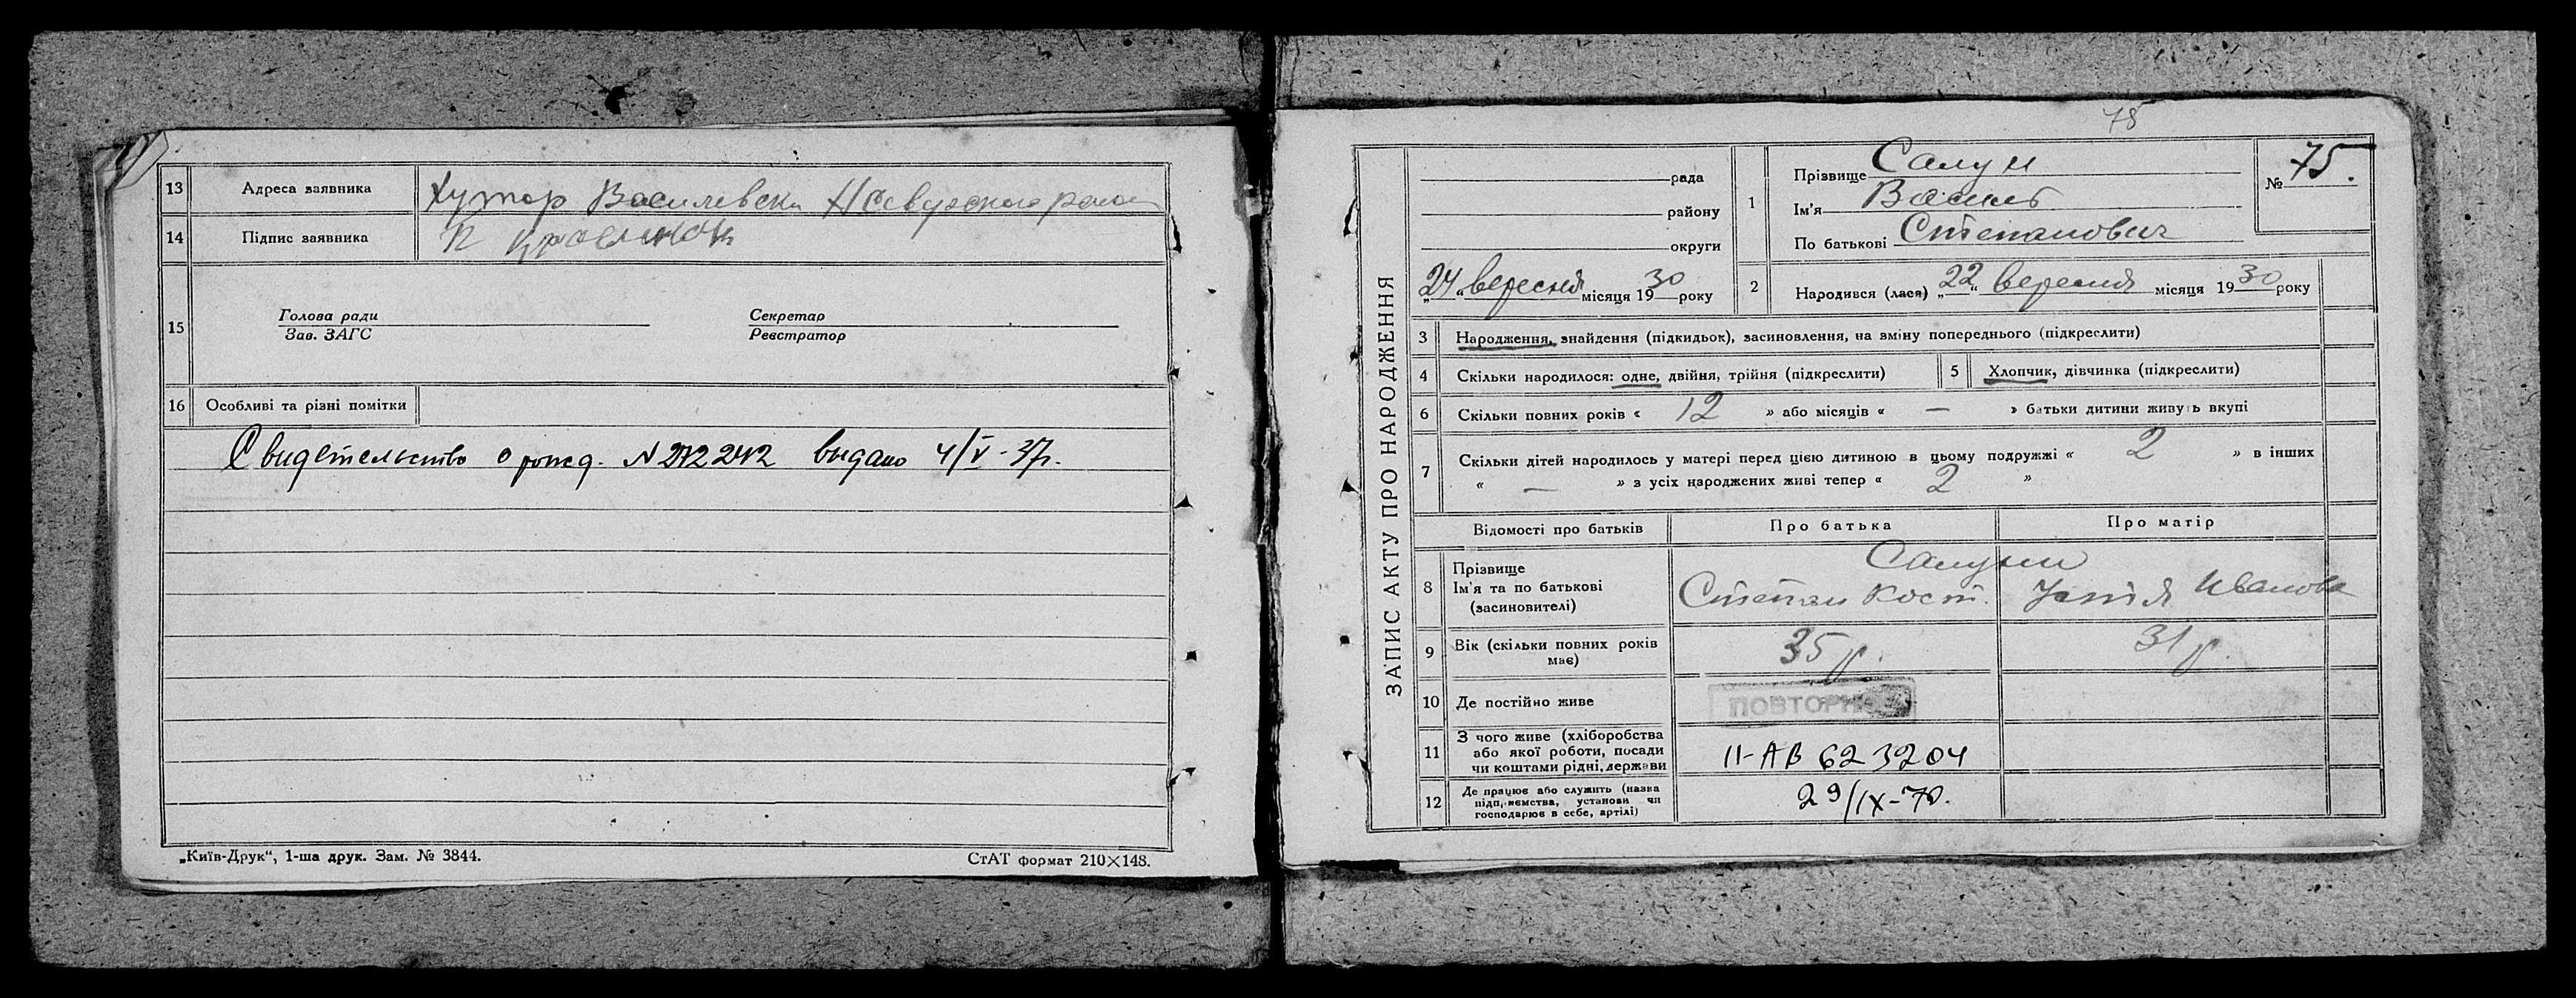 13 Адреса заявника Хутор Василевски Н Севурского район
14 Підпис заявника П
15
Голова ради Секретар
Зав. ЗАГС Реєстратор
16 Особливі та різні помітки
Свидетельство о рожд. N 272242 выдано 4/V-37г.
„Київ-Друк“, 1-ша друк. Зам. № 3844. СтАТ формат 210×148.
78
ЗАПИС АКТУ ПРО НАРОДЖЕННЯ
рада
району
округи
„24“ вересня місяця 1930 року
1 Прізвище Салун
Ім'я Василь
По батькові Степанович
№ 75.
2 Народився (лася) „22“ вересня місяця 1930 року
3 Народження, знайдення (підкидьок), засиновлення, на зміну попереднього (підкреслити)
4 Скільки народилося: одне, двійня, трійня (підкреслити) 5 Хлопчик, дівчинка (підкреслити)
6 Скільки повних років « 12 » або місяців « — » батьки дитини живуть вкупі
7 Скільки дітей народилось у матері перед цією дитиною в цьому подружжі « 2 » в інших
« — » з усіх народжених живі тепер « 2 »
Відомості про батьків Про батька Про матір
8 Прізвище
Ім'я та по батькові
(засновителі)
Салуни
Степан Кост. Устя Иванова
9 Вік (скільки повних років має) 35 р. 31 р.
10 Де постійно живе
ПОВТОРНО
11 З чого живе (хліборобства
або якої роботи, посади
чи коштами рідні, держави
II-АВ 623204
12 Де працює або служить (назва
підприємства, установи чи
господарює в себе, артілі)
29/IX-70.